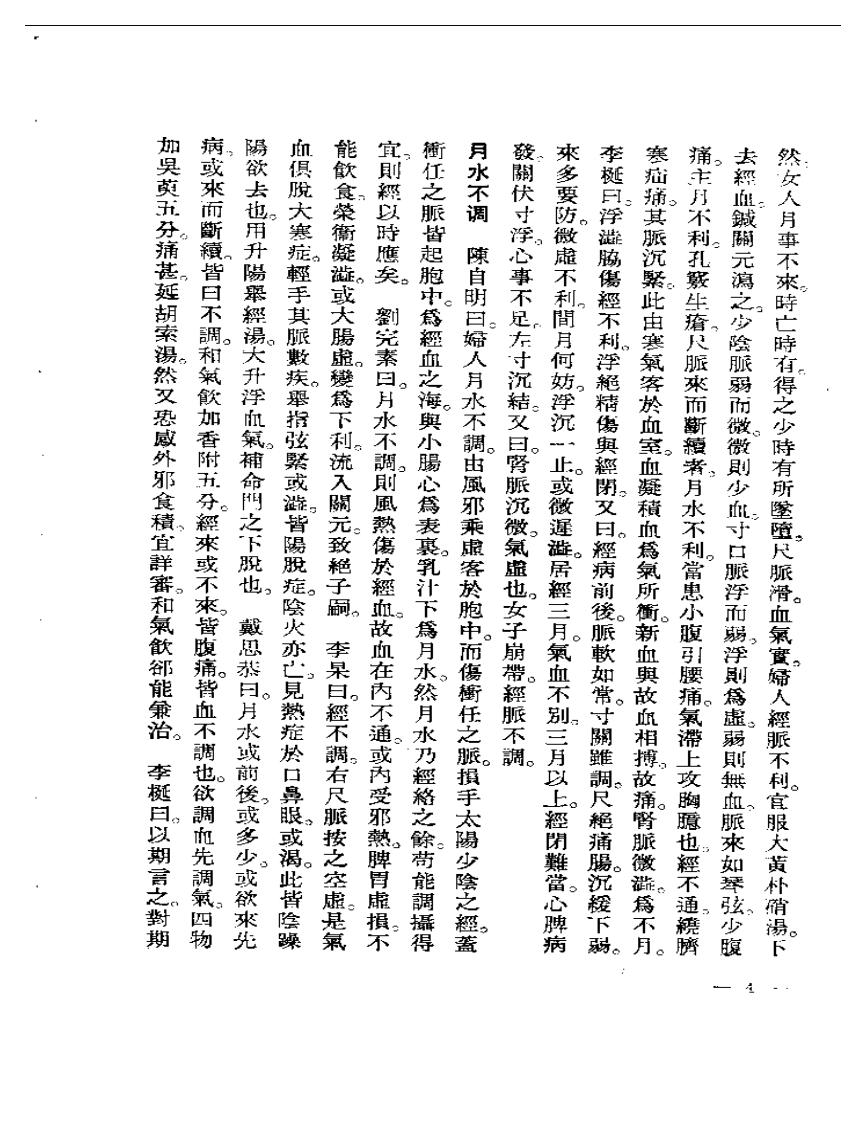 然女人月事不來。時亡時有。得之少時有所墜墮。尺脈滑。血氣實。婦人經脈不利。宜服大黃朴硝湯。下
去經血。鍼關元瀉之。少陰脈弱而微。微則少血。寸口脈浮而弱。浮則爲虛。弱則無血。脈來如琴弦。少腹
痛。主月不利。孔竅生瘡。尺脈來而斷續者。月水不利。當患小腹引腰痛。氣滯上攻胸臆也。經不通。繞臍
寒疝痛。其脈沉緊。此由寒氣客於血室。血凝積血爲氣所衝。新血與故血相搏。故痛。腎脈微澁。爲不月。
李梴曰。浮澁脇傷經不利。浮絕精傷與經閉。又曰。經病前後。脈軟如常。寸關雖調。尺絕痛腸。沉緩下弱。
來多要防。微虛不利。間月何妨。浮沉一止。或微遲澁。居經三月。氣血不別。三月以上。經閉難當。心脾病
發。關伏寸浮。心事不足。左寸沉結。又曰。腎脈沉微。氣虛也。女子崩帶。經脈不調。
月水不调　陳自明曰。婦人月水不調。由風邪乘虛客於胞中。而傷衝任之脈。損手太陽少陰之經。蓋
衝任之脈皆起胞中。爲經血之海。與小腸心爲表裏。乳汁下爲月水。然月水乃經絡之餘。苟能調攝得
宜。則經以時應矣。　劉完素曰。月水不調。則風熱傷於經血。故血在內不通。或內受邪熱。脾胃虛損。不
能飲食。榮衞凝澁。或大腸虛。變爲下利。流入關元。致絕子嗣。　李杲曰。經不調。右尺脈按之空虛。是氣
血俱脫大寒症。輕手其脈數疾。舉指弦緊或澁。皆陽脫症。陰火亦亡。見熱症於口鼻眼。或渴。此皆陰躁
陽欲去也。用升陽舉經湯。大升浮血氣。補命門之下脫也。　戴思恭曰。月水或前後。或多少。或欲來先
病。或來而斷續。皆曰不調。和氣飲加香附五分。經來或不來。皆腹痛。皆血不調也。欲調血先調氣。四物
加吳萸五分。痛甚。延胡索湯。然又恐感外邪食積。宜詳審。和氣飲郤能兼治。　李梴曰。以期言之。對期
— 4 —